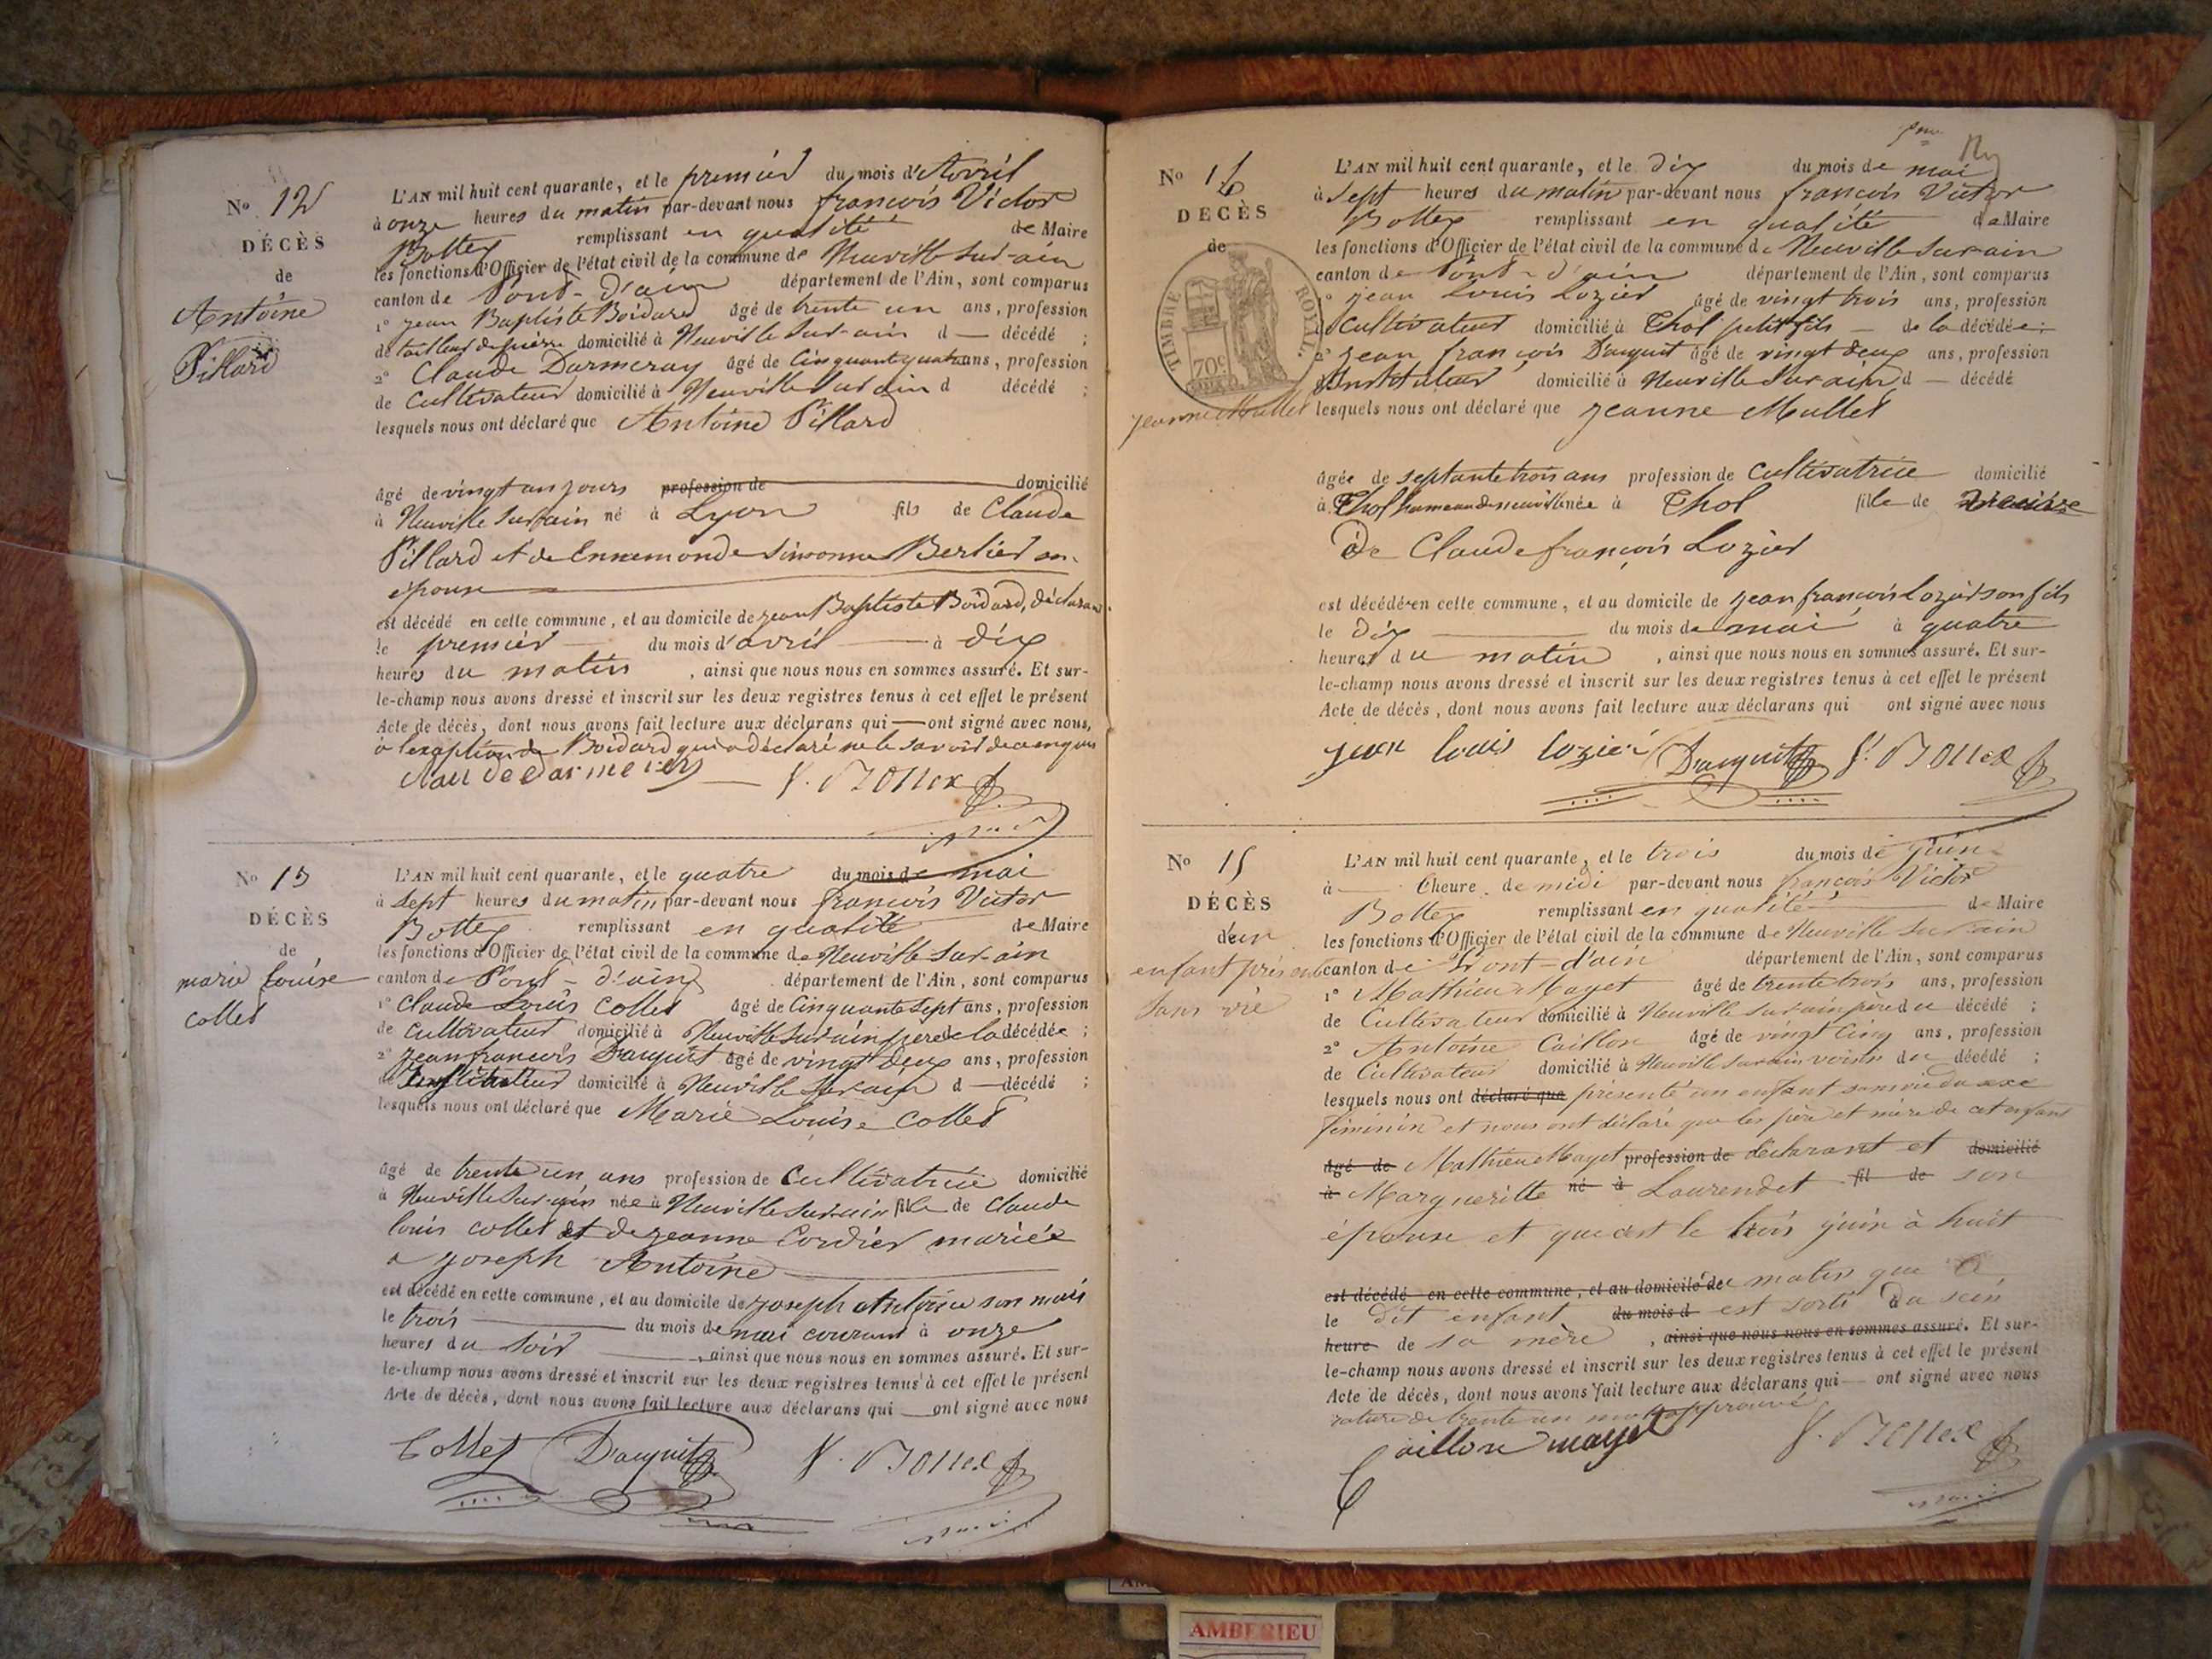 No 12
DÉCÈS
de
Antoine
Pillard
L'AN mil huit cent quarante, et le premier du mois d'Avril
à onze heures du matin par-devant nous françois Victor
Bottex remplissant en qualité de Maire
les fonctions d'Officier de l'état civil de la commune de Neuville sur-ain
canton de Pont-d'ain département de l'Ain, sont comparus
1° jean Baptiste Boidard âgé de trente un ans, profession
de tailleur de pierre domicilié à Neuville sur-ain d — décédé ;
2° Claude Darmeray âgé de Cinquante quatre ans, profession
de Cultivateur domicilié à Neuville sur ain d décédé ;
lesquels nous ont déclaré que Antoine Pillard
âgé de vingt un jours profession de domicilié
à Neuville sur ain né à Lyon fils de Claude
Pillard et de Ennemonde Simonne Berlier son
épouse
est décédé en cette commune, et au domicile de jean Baptiste Boidard, déclarant
le premier du mois d'avril à dix
heures du matin, ainsi que nous nous en sommes assuré. Et sur-
le-champ nous avons dressé et inscrit sur les deux registres tenus à cet effet le présent
Acte de décès, dont nous avons fait lecture aux déclarans qui — ont signé avec nous,
à l'exception de Boidard qui a déclaré ne le savoir de ce enquis
No 13
DÉCÈS
de
marie louise
collet
L'AN mil huit cent quarante, et le quatre du mois de mai
à sept heures du matin par-devant nous françois Victor
Bottex remplissant en qualité de Maire
les fonctions d'Officier de l'état civil de la commune de Neuville sur-ain
canton de Pont-d'ain département de l'Ain, sont comparus
1° Claude Louis Collet âgé de Cinquante sept ans, profession
de Cultivateur domicilié à Neuville sur ain pere de la décédée ;
2° Jean françois Dauguit âgé de vingt deux ans, profession
de Instituteur domicilié à Neuville sur ain d — décédé ;
lesquels nous ont déclaré que Marie Louise Collet
âgé de trente un ans profession de Cultivatrice domicilié
à Neuville sur-ain née à Neuville sur ain fille de Claude
louis collet et de jeanne Cordier mariée
a joseph Antoine
est décédé en cette commune, et au domicile de joseph Antoine son mari
le trois du mois de mai courant à onze
heures du soir, ainsi que nous nous en sommes assuré. Et sur-
le-champ nous avons dressé et inscrit sur les deux registres tenus à cet effet le présent
Acte de décès, dont nous avons fait lecture aux déclarans qui — ont signé avec nous
Collet Dauguit f. Bottex
No 14
DECÈS
de
TIMBRE ROYAL
70c
jeanne Mullet
L'AN mil huit cent quarante, et le dix du mois de mai
à sept heures du matin par-devant nous françois Victor
Bottex remplissant en qualité de Maire
les fonctions d'Officier de l'état civil de la commune de Neuville sur ain
canton de Pont-d'ain département de l'Ain, sont comparus
1° jean Louis Lozier âgé de vingt trois ans, profession
de Cultivateur domicilié à Thol petit fils — de la décédée ;
2° jean françois Dauguit âgé de vingt deux ans, profession
d'Instituteur domicilié à Neuville sur ain d — décédé
lesquels nous ont déclaré que jeanne Mullet
âgée de septante trois ans profession de Cultivatrice domicilié
à Thol hameau de neuville née à Thol fille de
De Claude françois Lozier
est décédée en cette commune, et au domicile de jean françois Lozier son fils
le dix du mois de mai à quatre
heures du matin, ainsi que nous nous en sommes assuré. Et sur-
le-champ nous avons dressé et inscrit sur les deux registres tenus à cet effet le présent
Acte de décès, dont nous avons fait lecture aux déclarans qui ont signé avec nous
jean louis lozier Dauguit f. Bottex
No 15
DÉCÈS
d'un
enfant présenté
sans vie
L'AN mil huit cent quarante, et le trois du mois de juin
à — l'heure de midi par-devant nous françois Victor
Bottex remplissant en qualité de Maire
les fonctions d'Officier de l'état civil de la commune de Neuville sur ain
canton de Pont-d'ain département de l'Ain, sont comparus
1° Mathieu Mayet âgé de trente trois ans, profession
de Cultivateur domicilié à Neuville sur ain père du décédé ;
2° Antoine Caillon âgé de vingt Cinq ans, profession
de Cultivateur domicilié à Neuville sur ain voisin du décédé ;
lesquels nous ont déclaré que présenté un enfant sans vie du sexe
féminin et nous ont déclaré que les père et mère de cet enfant
âgé de Mathieu Mayet profession de déclarant et domicilié
à Marguerite né à Laurendet fil de son
épouse et que c'est le trois juin à huit
est décédé en cette commune, et au domicile de du matin que le
le dit enfant du mois d est sorti du sein
heure de sa mère, ainsi que nous nous en sommes assuré. Et sur-
le-champ nous avons dressé et inscrit sur les deux registres tenus à cet effet le présent
Acte de décès, dont nous avons fait lecture aux déclarans qui — ont signé avec nous
rature de trente un mots approuvé
Caillon mayet f. Bottex
AMBERIEU